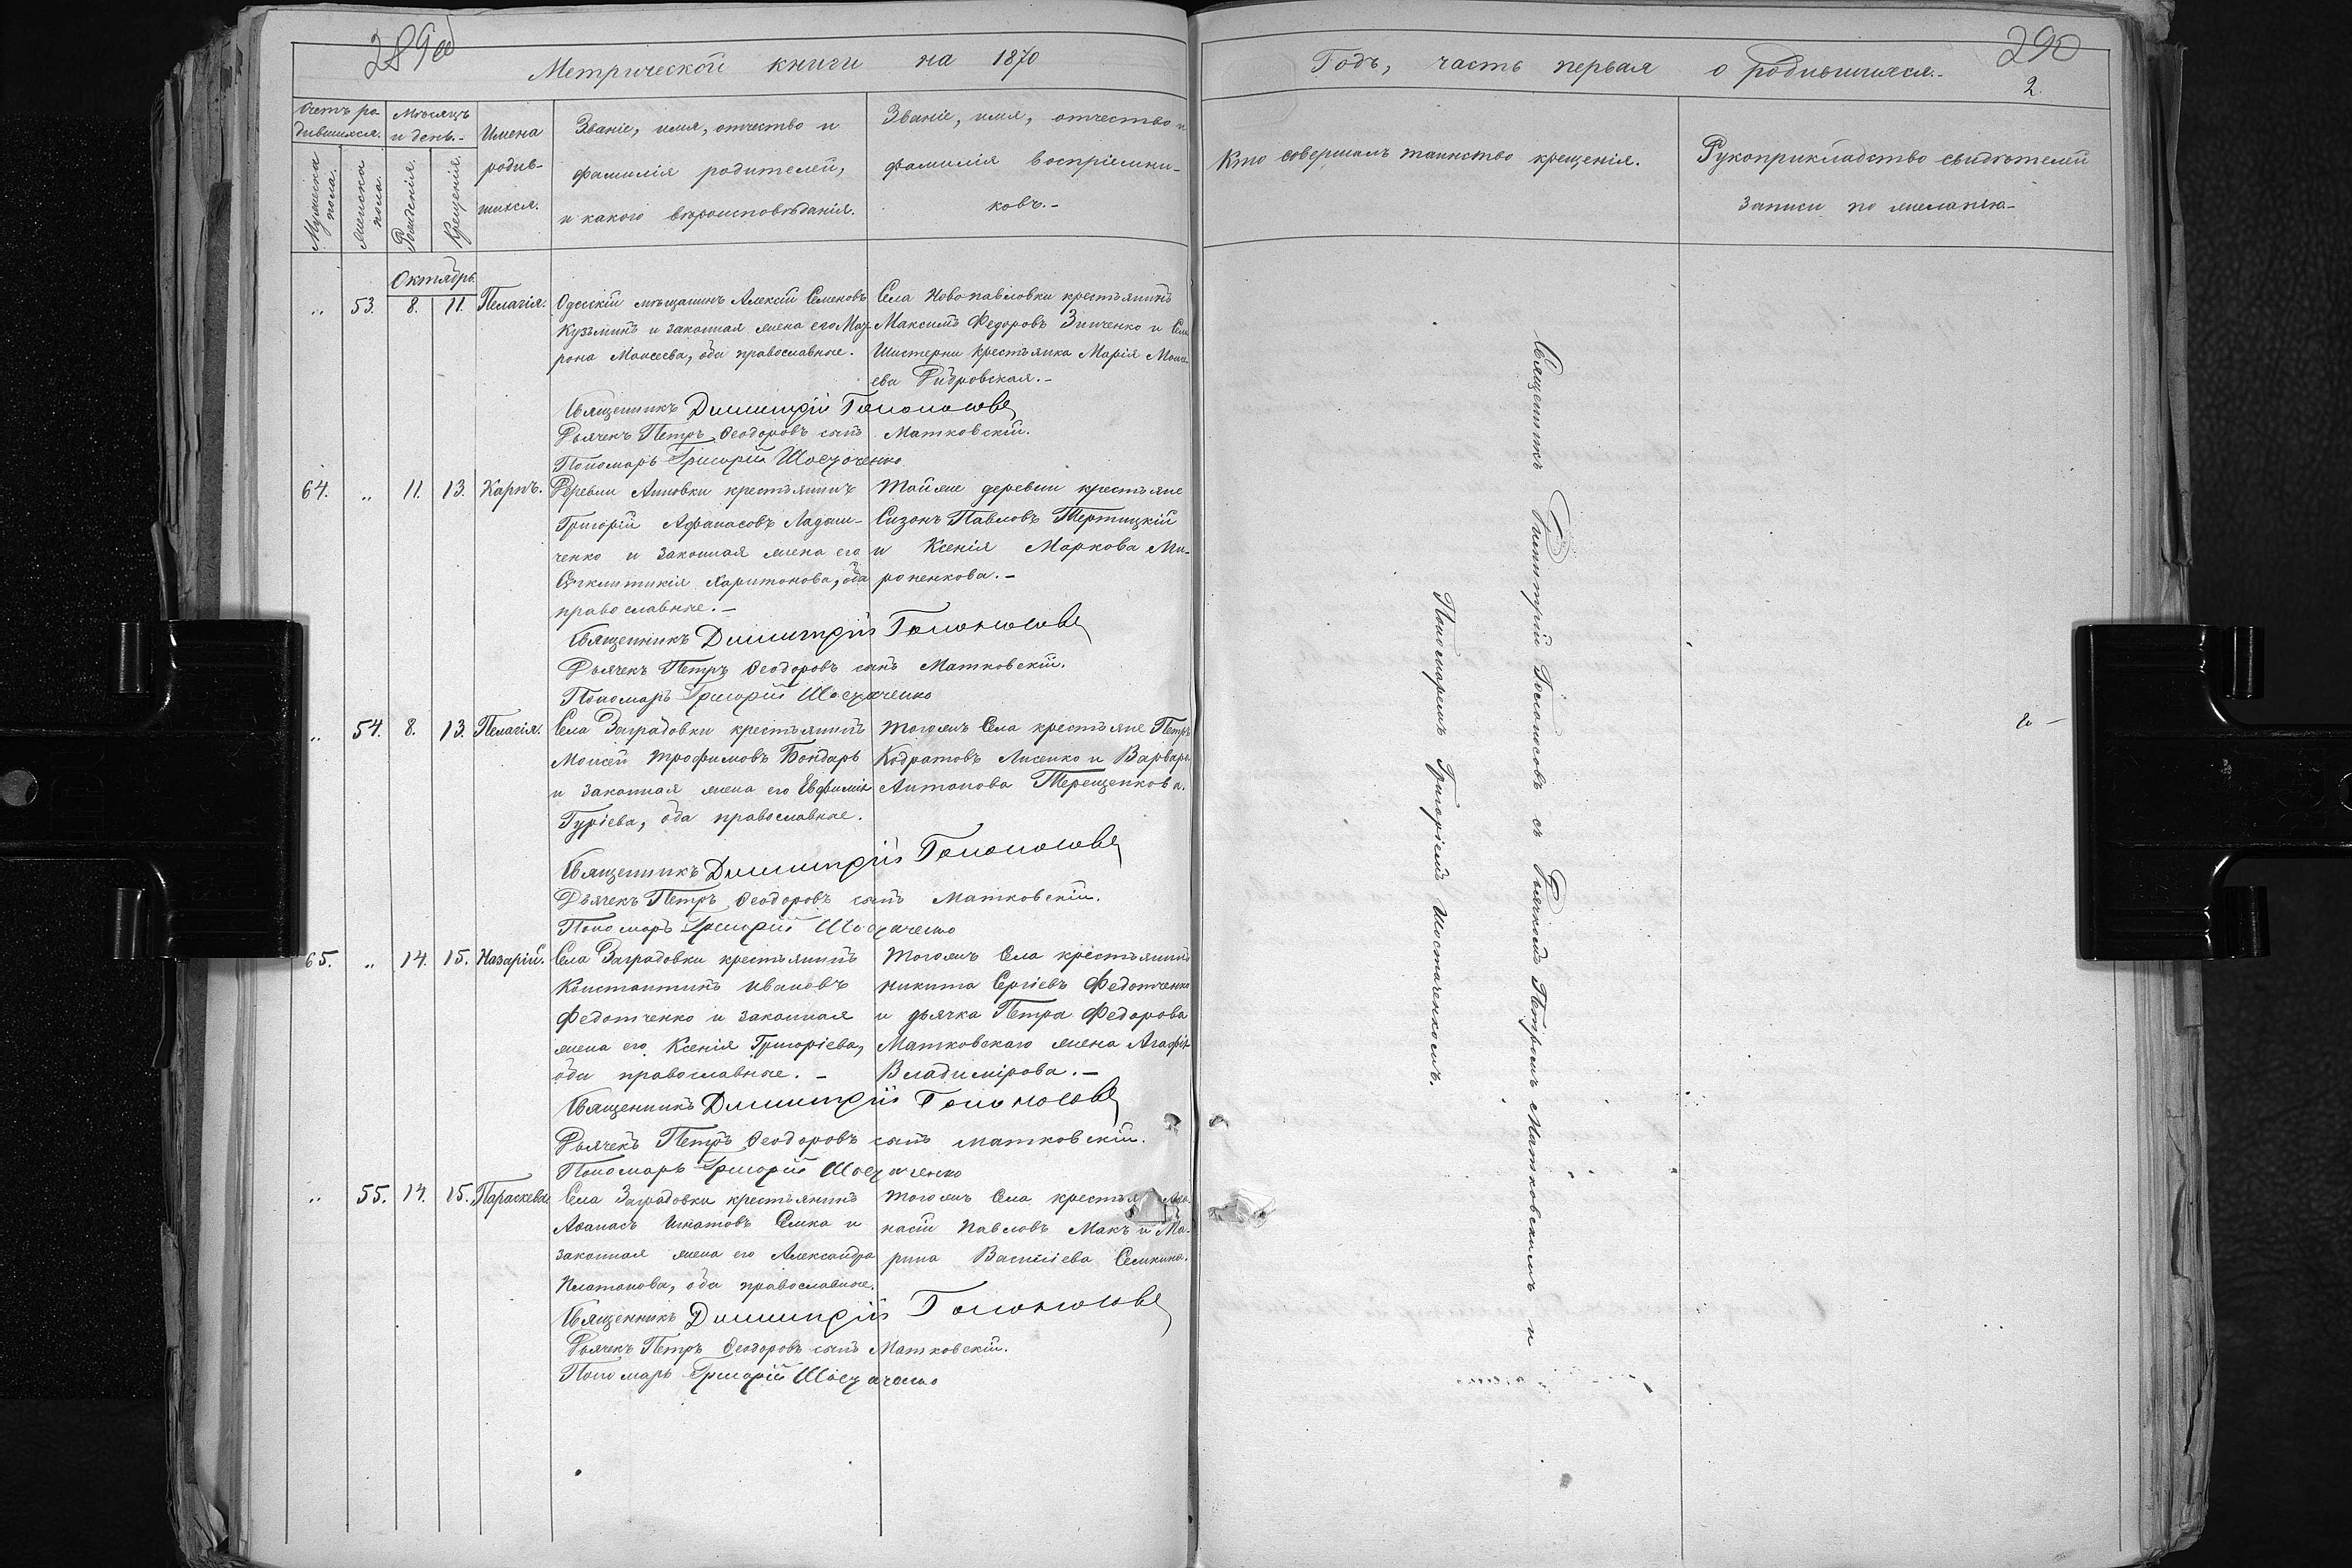 289об
Метрической книги на 1870
Счетъ родившихся.
Мужеска пола.
Женска пола.
Мѣсяцъ и день.-
Рожденія.
Крещенія.
Имена
родив-
шихся.
Званіе, имя, отчество и
фамилія родителей,
и какого вѣроисповѣданія.
Званіе, имя, отчество и
фамилія воспріемни-
ковъ.-
Октябрь
„ 53. 8. 11. Пелагія.
Одесскій мѣщанинъ Алексій Семеновъ
Кузьминъ и законная жена его Мат-
рона Моисеева, оба православные.
Села Новопавловки крестьянинъ
Максимъ Федоровъ Зинченко и Села
Шестерни крестьянка Марія Моисе-
ева
Священникъ Димитрій Голоносовъ
Дьячекъ Петръ Ѳеодоровъ сынъ Матковскій.
Пономарь Григорій Шостаченко
64. „ 11. 13. Карпъ.
Деревни Анновки крестьянинъ
Григорій Афанасовъ Ладаш-
ченко и законная жена его
Синклитикія Харитонова, оба
православные.-
Тойже деревни крестьяне
Сизонъ Павловъ Тертицкій
и Ксенія Маркова Ми-
роненкова.-
Священникъ Димитрій Голоносовъ
Дьячекъ Петръ Ѳеодоровъ сынъ Матковскій.
Пономарь Григорій Шостаченко
„ 54. 8. 13. Пелагія.
Села Заградовки крестьянинъ
Моисей Трофимовъ Бондарь
и законная жена его Евфимія
Гуріева, оба православные.
Тогожъ Села крестьяне Петръ
Кодратовъ Лисенко и Варвара
Антонова Терещенкова.
Священникъ Димитрій Голоносовъ
Дьячекъ Петръ Ѳеодоровъ сынъ Матковскій.
Пономарь Григорій Шостаченко
65. „ 14. 15. Назарій.
Села Заградовки крестьянинъ
Константинъ Ивановъ
Федотченко и законная
жена его Ксенія Григоріева,
оба православные.-
Тогожъ Села крестьянинъ
Никита Сергіевъ Федотченко
и дьячка Петра Федорова
Матковскаго жена Агафія
Владимірова.-
Священникъ Димитрій Голоносовъ
Дьячекъ Петръ Ѳеодоровъ сынъ Матковскій.
Пономарь Григорій Шостаченко
„ 55. 14. 15. Параскева
Села Заградовки крестьянинъ
Аѳанасъ Игнатовъ Семка и
законная жена его Александра
Платонова, оба православные.
Тогожъ Села
насій Павловъ Макъ и Ма-
рина Василіева Семкина.
Священникъ Димитрій Голоносовъ
Дьячекъ Петръ Ѳеодоровъ сынъ Матковскій.
Пономарь Григорій Шостаченко
290
Годъ, часть первая о родившихся.-
2.
Кто совершалъ таинство крещенія.
Рукоприкладство свидѣтелей
записи по желанію-
Священникъ Димитрій Голоносовъ съ Дьячкомъ Петромъ Матковскимъ и
Пономаремъ Григоріемъ Шостаченкомъ.